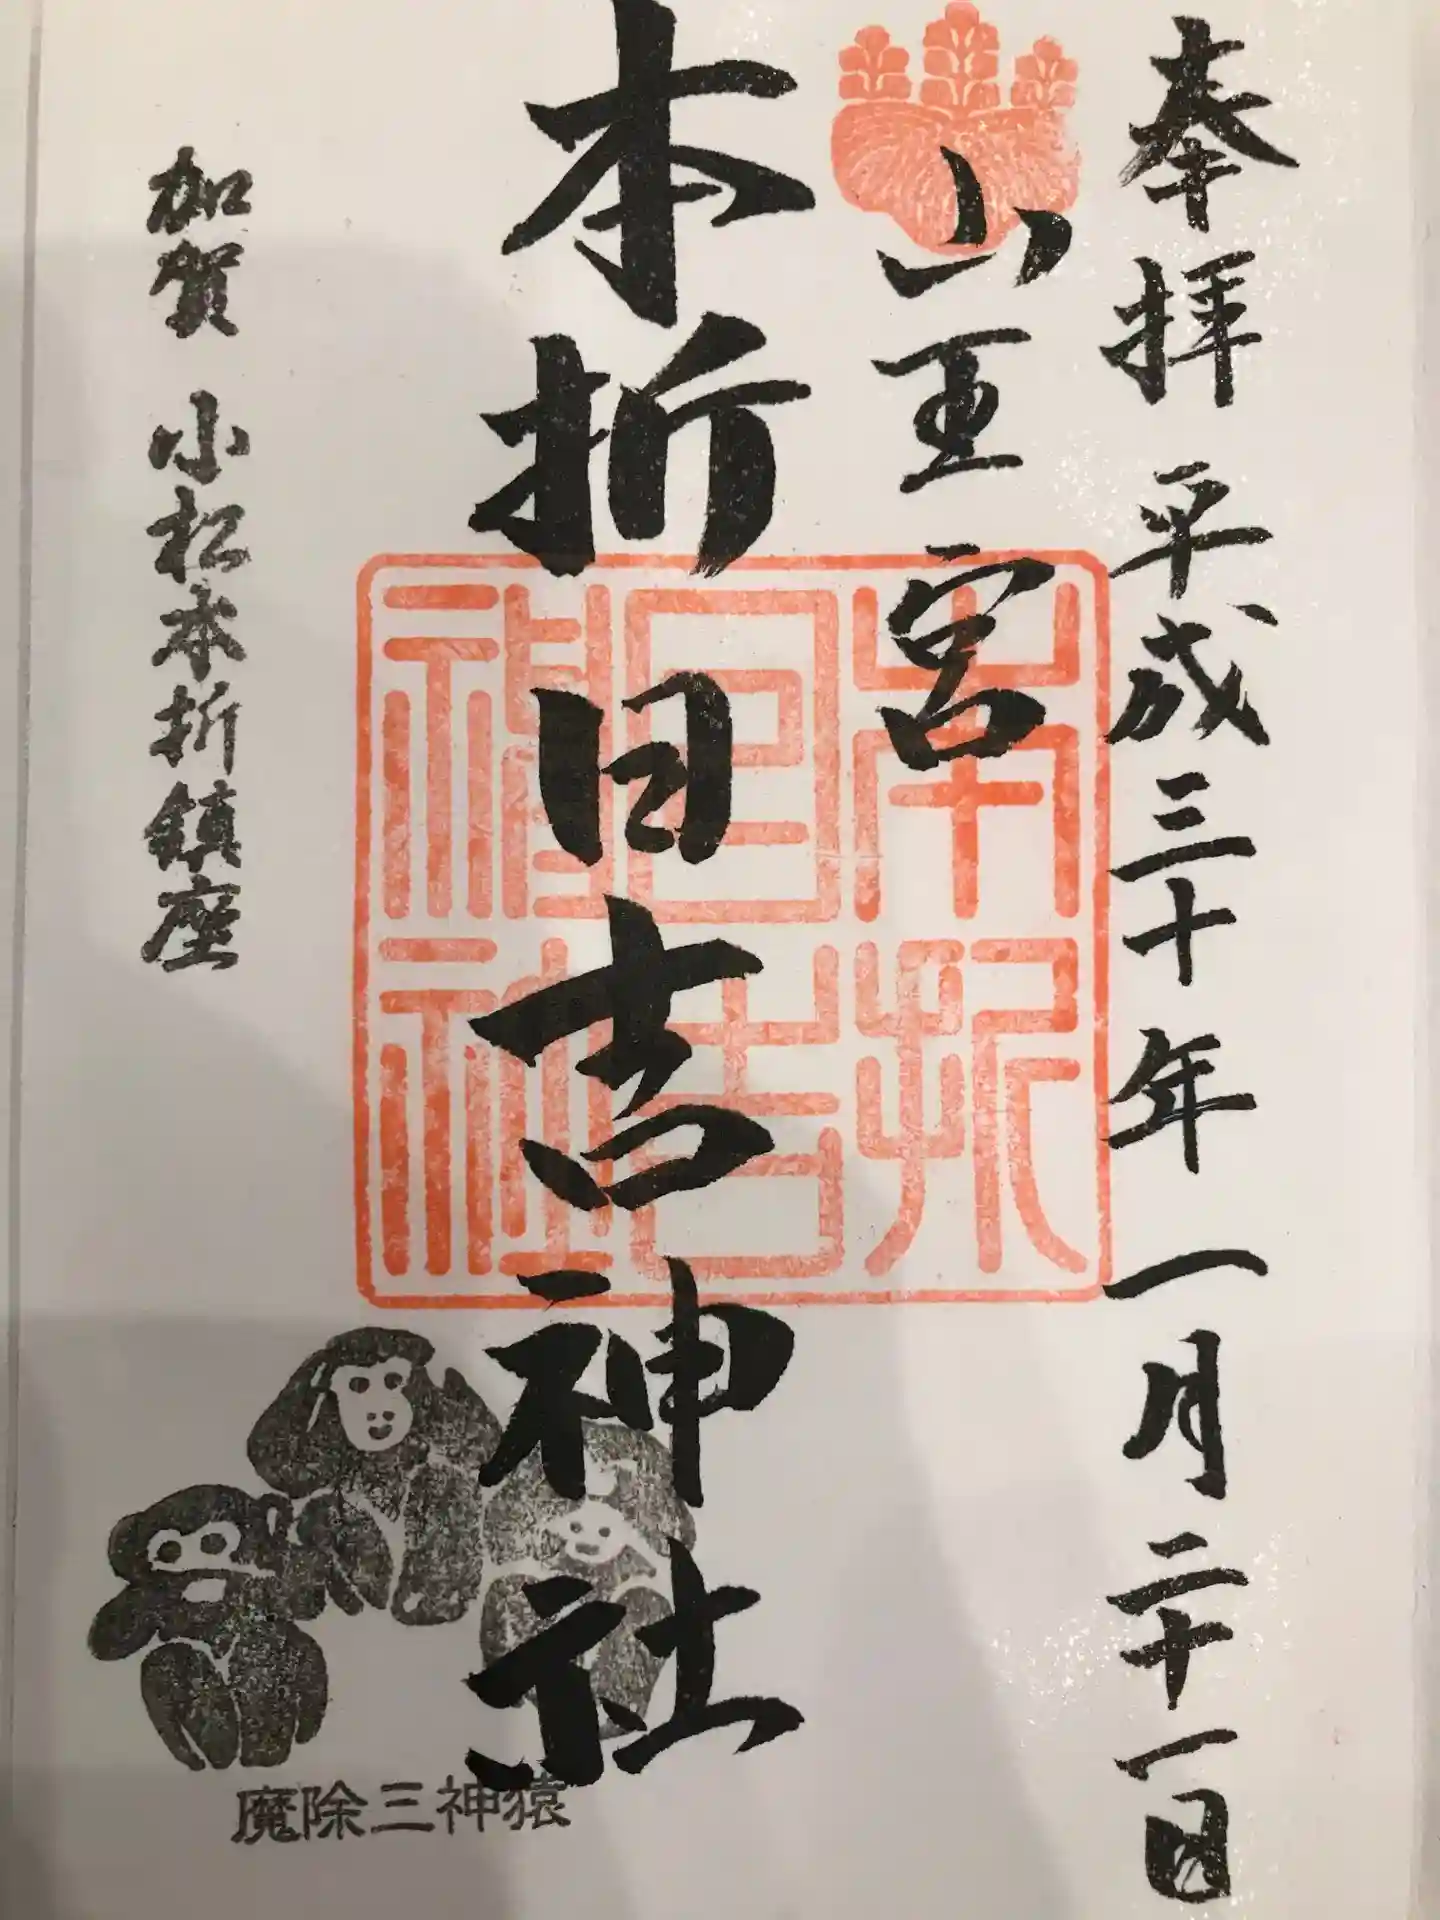 奉拝 平成三十年一月二十一日
山王宮
本折日吉神社
本折日吉神社
加賀 小松本折鎮座
魔除三神猿